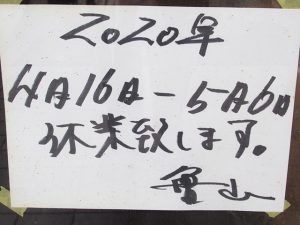 2020年
4月16日-5月6日
休業致します。
亀山